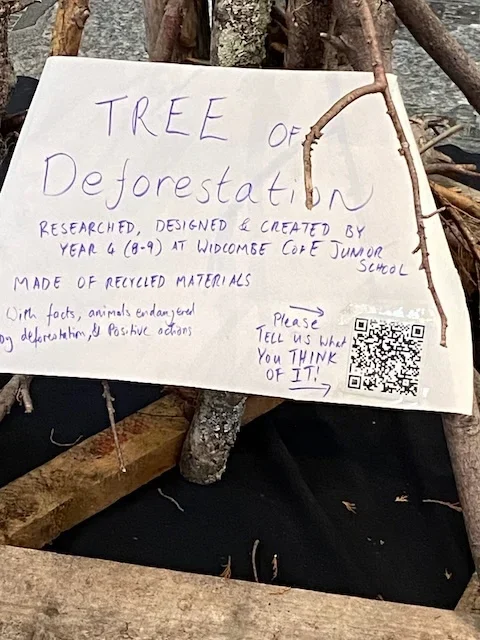 TREE OF
Deforestation
RESEARCHED, DESIGNED & CREATED BY
YEAR 4 (8-9) AT WIDCOMBE CofE JUNIOR
SCHOOL
MADE OF RECYCLED MATERIALS
With facts, animals endangered
by deforestation, & Positive actions
Please
TELL US what
YOU THINK
OF IT!